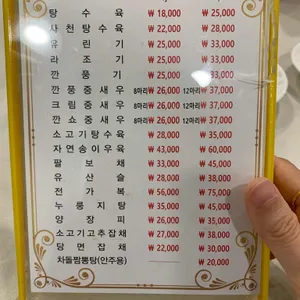 탕 수 육 ₩ 18,000 ₩ 25,000
사천탕수육 ₩ 22,000 ₩ 28,000
유 린 기 ₩ 25,000 ₩ 33,000
라 조 기 ₩ 25,000 ₩ 33,000
깐 풍 기 ₩ 25,000 ₩ 33,000
깐 풍 중 새 우 8마리 ₩ 26,000 12마리 ₩ 37,000
크 림 중 새 우 8마리 ₩ 26,000 12마리 ₩ 37,000
깐 쇼 중 새 우 8마리 ₩ 26,000 12마리 ₩ 37,000
소고기탕수육 ₩ 28,000 ₩ 35,000
자연송이우육 ₩ 43,000 ₩ 60,000
팔 보 채 ₩ 33,000 ₩ 45,000
유 산 슬 ₩ 28,000 ₩ 38,000
전 가 복 ₩ 56,000 ₩ 75,000
누 룽 지 탕 ₩ 35,000 ₩ 45,000
양 장 피 ₩ 35,000 ₩ 45,000
소고기고추잡채 ₩ 27,000 ₩ 38,000
당 면 잡 채 ₩ 22,000 ₩ 30,000
차돌짬뽕탕(안주용) ₩ 20,000